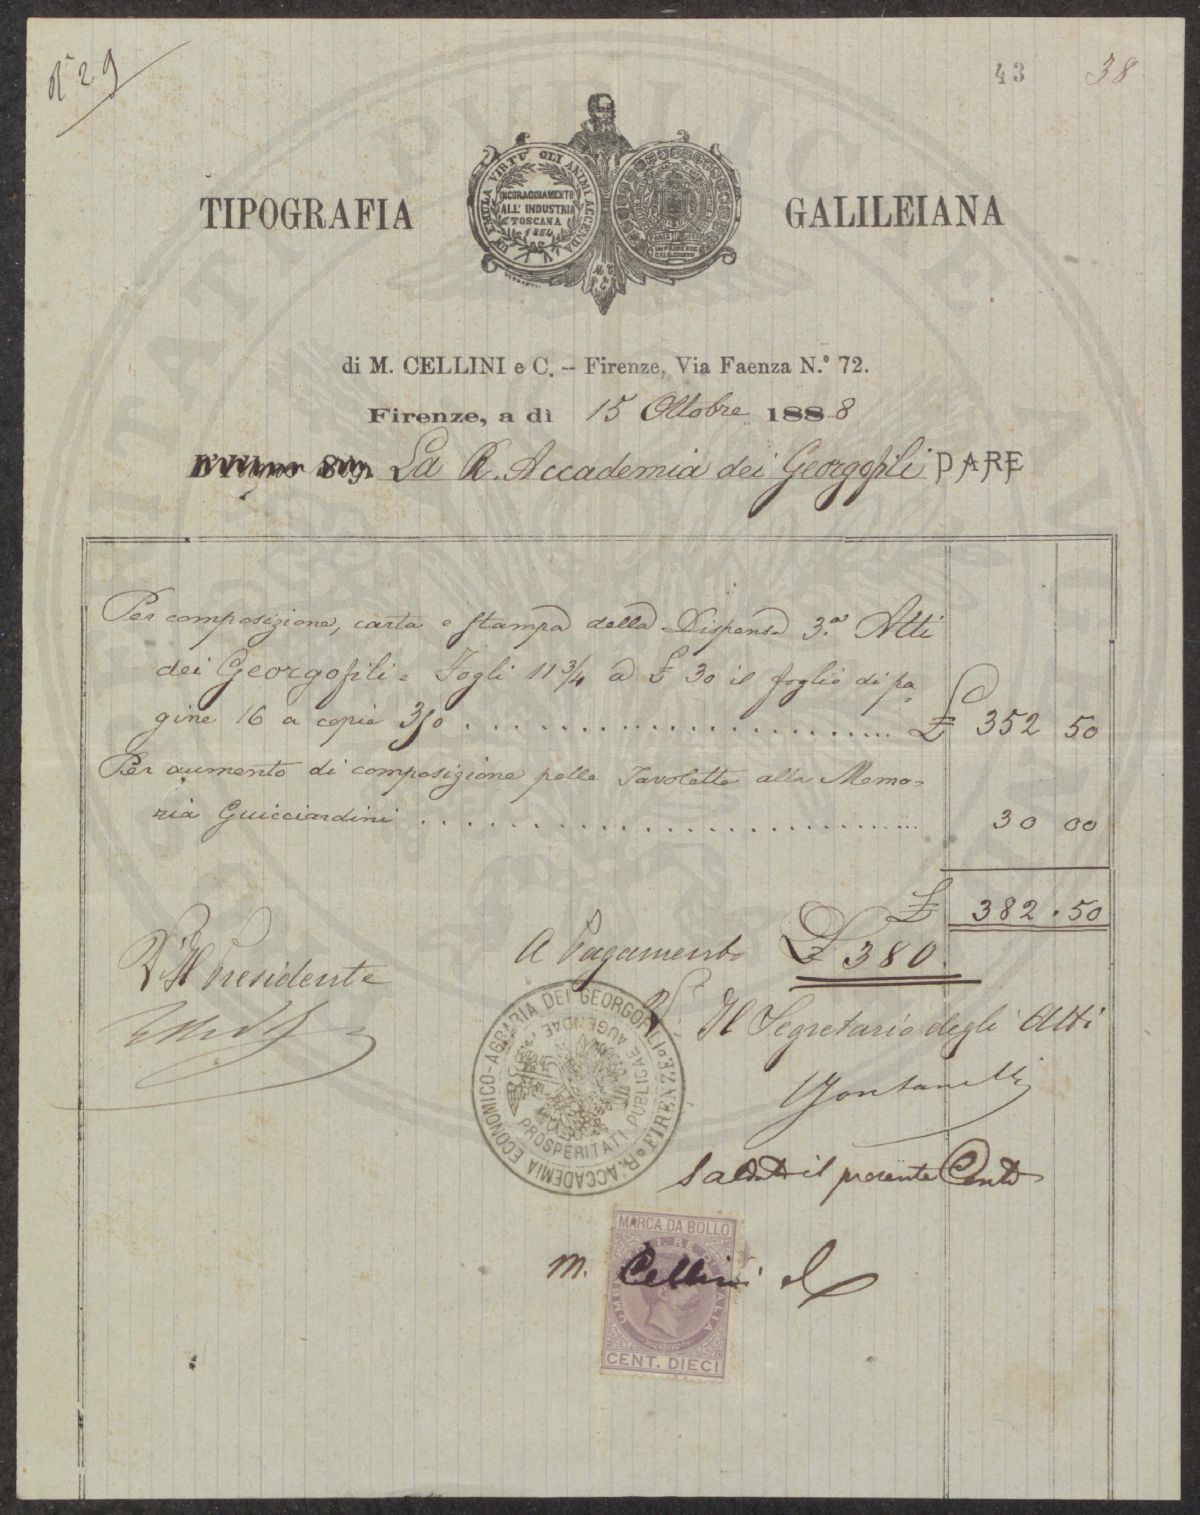 N° 29
43 38
TIPOGRAFIA GALILEIANA
UN EMULA VIRTU' GLI ANIMI ACCENDA
INCORAGGIAMENTO
ALL' INDUSTRIA
TOSCANA
1854
di M. CELLINI e C. – Firenze, Via Faenza N.° 72.
Firenze, a dì 15 Ottobre 1888
La R. Accademia dei Georgofili DARE
Per composizione, carta e stampa della Dispensa 3.a Atti
dei Georgofili = Fogli 11 3/4 a £ 30 il foglio di pa-
gine 16 a copie 350 £ 352 50
Per aumento di composizione pelle Tavolette alla Memo-
ria Guicciardini 30 00
£ 382.50
A Pagamento £ 380.
V° Il Presidente
V° Il Segretario degli Atti
Fontanelli
R. ACCADEMIA ECONOMICO-AGRARIA DEI GEORGOFILI FIRENZE
PROSPERITATI PUBLICAE AUGENDAE
Saldato il presente Conto
MARCA DA BOLLO
M. Cellini e C
UMBERTO I. RE D'ITALIA
CENT. DIECI